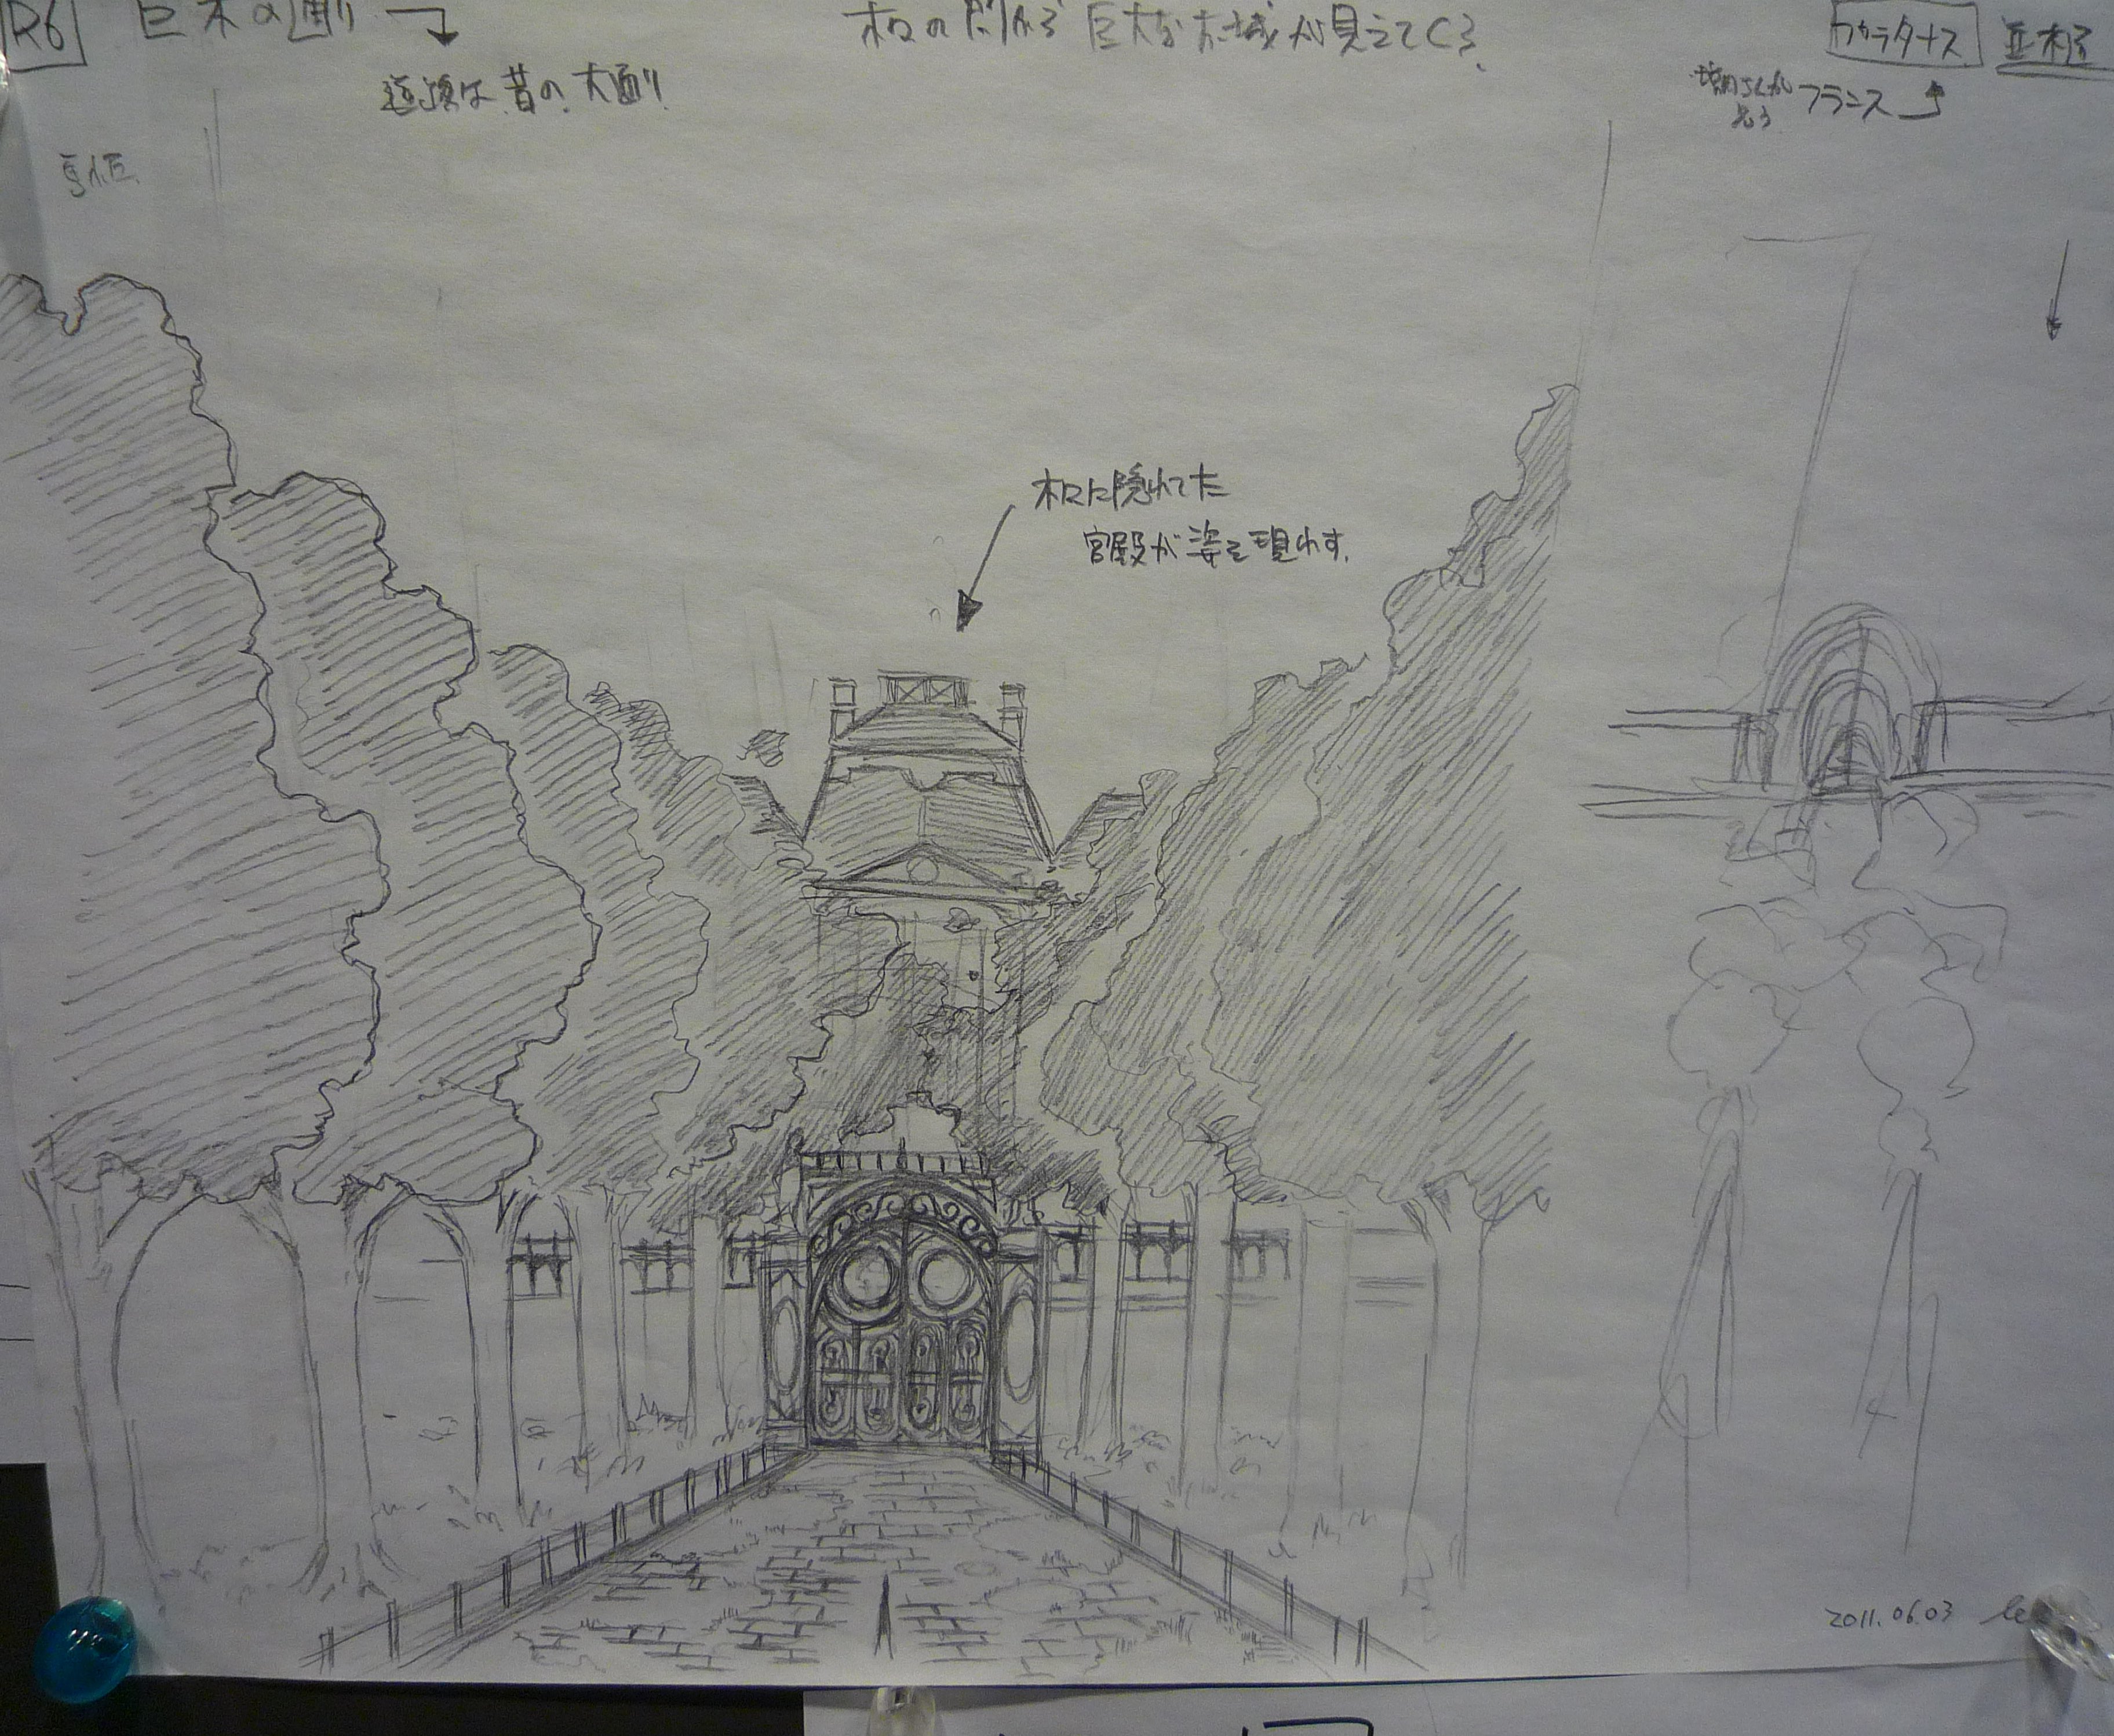 R6 巨木の通り
道頓は昔の大通り
木々の間から巨大な古城が見えてくる。
プラタナス 並木
フランス
木々に隠れてた
宮殿が姿を現わす。
2011.06.03